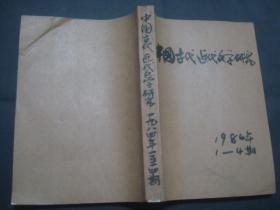 中国古代近代文学研究
1984年
1—4期
中国古代近代文学研究 一九八四年 一至四期